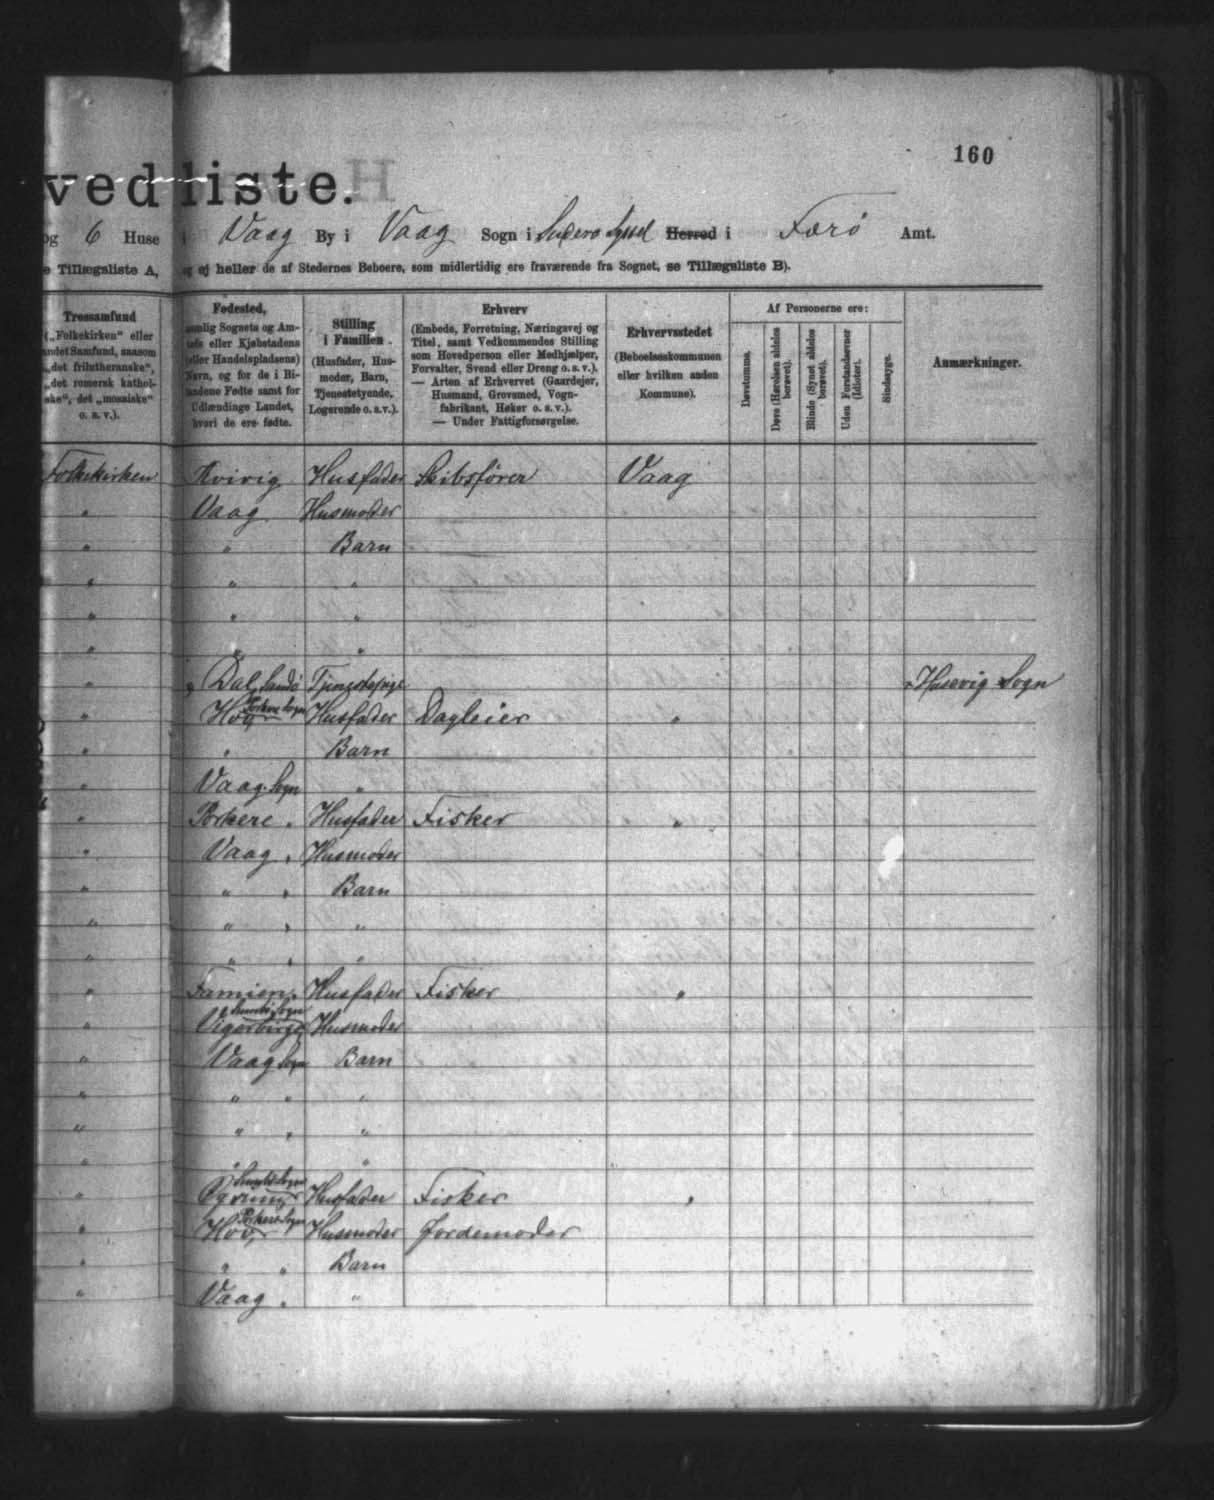 160
vedliste.
og 6 Huse i Vaag By i Vaag Sogn i Suderø Syssel Herred i Færø Amt.
e Tillægsliste A, og ej heller de af Stedernes Beboere, som midlertidig ere fraværende fra Sognet, se Tillægsliste B).
Trossamfund
(„Folkekirken“ eller
andet Samfund, saasom
„det frilutheranske“,
„det romersk kathol-
ske“, det „mosaiske“
o. s. v.).
Fødested,
nemlig Sognets og Am-
tets eller Kjøbstadens
(eller Handelspladsens)
Navn, og for de i Bi-
landene Fødte samt for
Udlændinge Landet,
hvori de ere fødte.
Stilling
i Familien.
(Husfader, Hus-
moder, Barn,
Tjenestetyende,
Logerende o. s. v.).
Erhverv
(Embede, Forretning, Næringsvej og
Titel, samt Vedkommendes Stilling
som Hovedperson eller Medhjælper,
Forvalter, Svend eller Dreng o. s. v.).
— Arten af Erhvervet (Gaardejer,
Husmand, Grovsmed, Vogn-
fabrikant, Høker o. s. v.).
— Under Fattigforsørgelse.
Erhvervsstedet
(Beboelseskommunen
eller hvilken anden
Kommune).
Af Personerne ere:
Døvstumme.
Døve (Hørelsen aldeles
berøvet).
Blinde (Synet aldeles
berøvet).
Uden Forstandsevner
(Idioter).
Sindssyge.
Anmærkninger.
Folkekirken Kvivig Husfader Skibsfører Vaag
" Vaag Husmoder
" " Barn
" " "
" " "
" " "
" Dal, Sandø Tjenestepige Husevig Sogn
" Hov, Porkere Sogn Husfader Dagleier "
" " Barn
" Vaag Sogn "
" Porkere " Husfader Fisker "
" Vaag " Husmoder
" " " Barn
" " " "
" " " "
" Famien " Husfader Fisker "
" Vigarbirge Sumbø Sogn Husmoder
" Vaag Sogn Barn
" " " "
" " " "
" " "
" Sumbø Sogn Husfader Fisker "
" Hov, Porkere Sogn Husmoder Jordemoder
" " " Barn
" Vaag " "